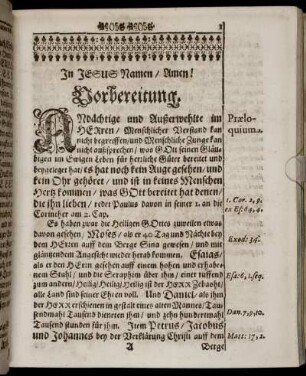 In JESUS Namen / Amen!
Vorbereitung.
ANdächtige und Außerwehlte im
HErren / Menschlicher Verstand kan
nicht begreiffen / und Menschliche Zunge kan
nicht außsprechen / was GOtt seinen Gläu-
bigen im Ewigen Leben für herrliche Güter bereitet und
beygeleget hat / es hat noch kein Auge gesehen / und
kein Ohr gehöret / und ist in keines Menschen
Hertz kommen / was GOtt bereitet hat denen /
die ihn lieben / redet Paulus davon in seiner 1. an die
Corinther am 2. Cap.
Es haben zwar die Heiligen GOttes zuweilen etwas
davon gesehen / Moses / als er 40 Tag und Nächte bey
dem HErren auff dem Berge Sina gewesen / und mit
gläntzendem Angesicht wieder herab kommen. Esaias /
als er den HErrn gesehen auff einem hohen und erhabe-
nem Stuhl / und die Seraphim über ihm / einer ruffend
zum andern / Heilig / Heilig / Heilig ist der HErr Zebaoth /
alle Land sind seiner Ehren voll. Und Daniel / als ihm
der HErr erschienen in gestalt eines alten Mannes / Tau-
sendmahl Tausend dieneten ihm / und zehn hundertmahl
Tausend stunden für ihm. Item Petrus / Jacobus
und Johannes bey der Verklärung Christi auff dem
A
Berge
Prælo-
quium.
1. Cor. 2, 9.
ex Es: 64, 4.
Exod: 34.
Esa: 6, 1. seq.
Dan. 7, 9, 10.
Matt: 17, 2.